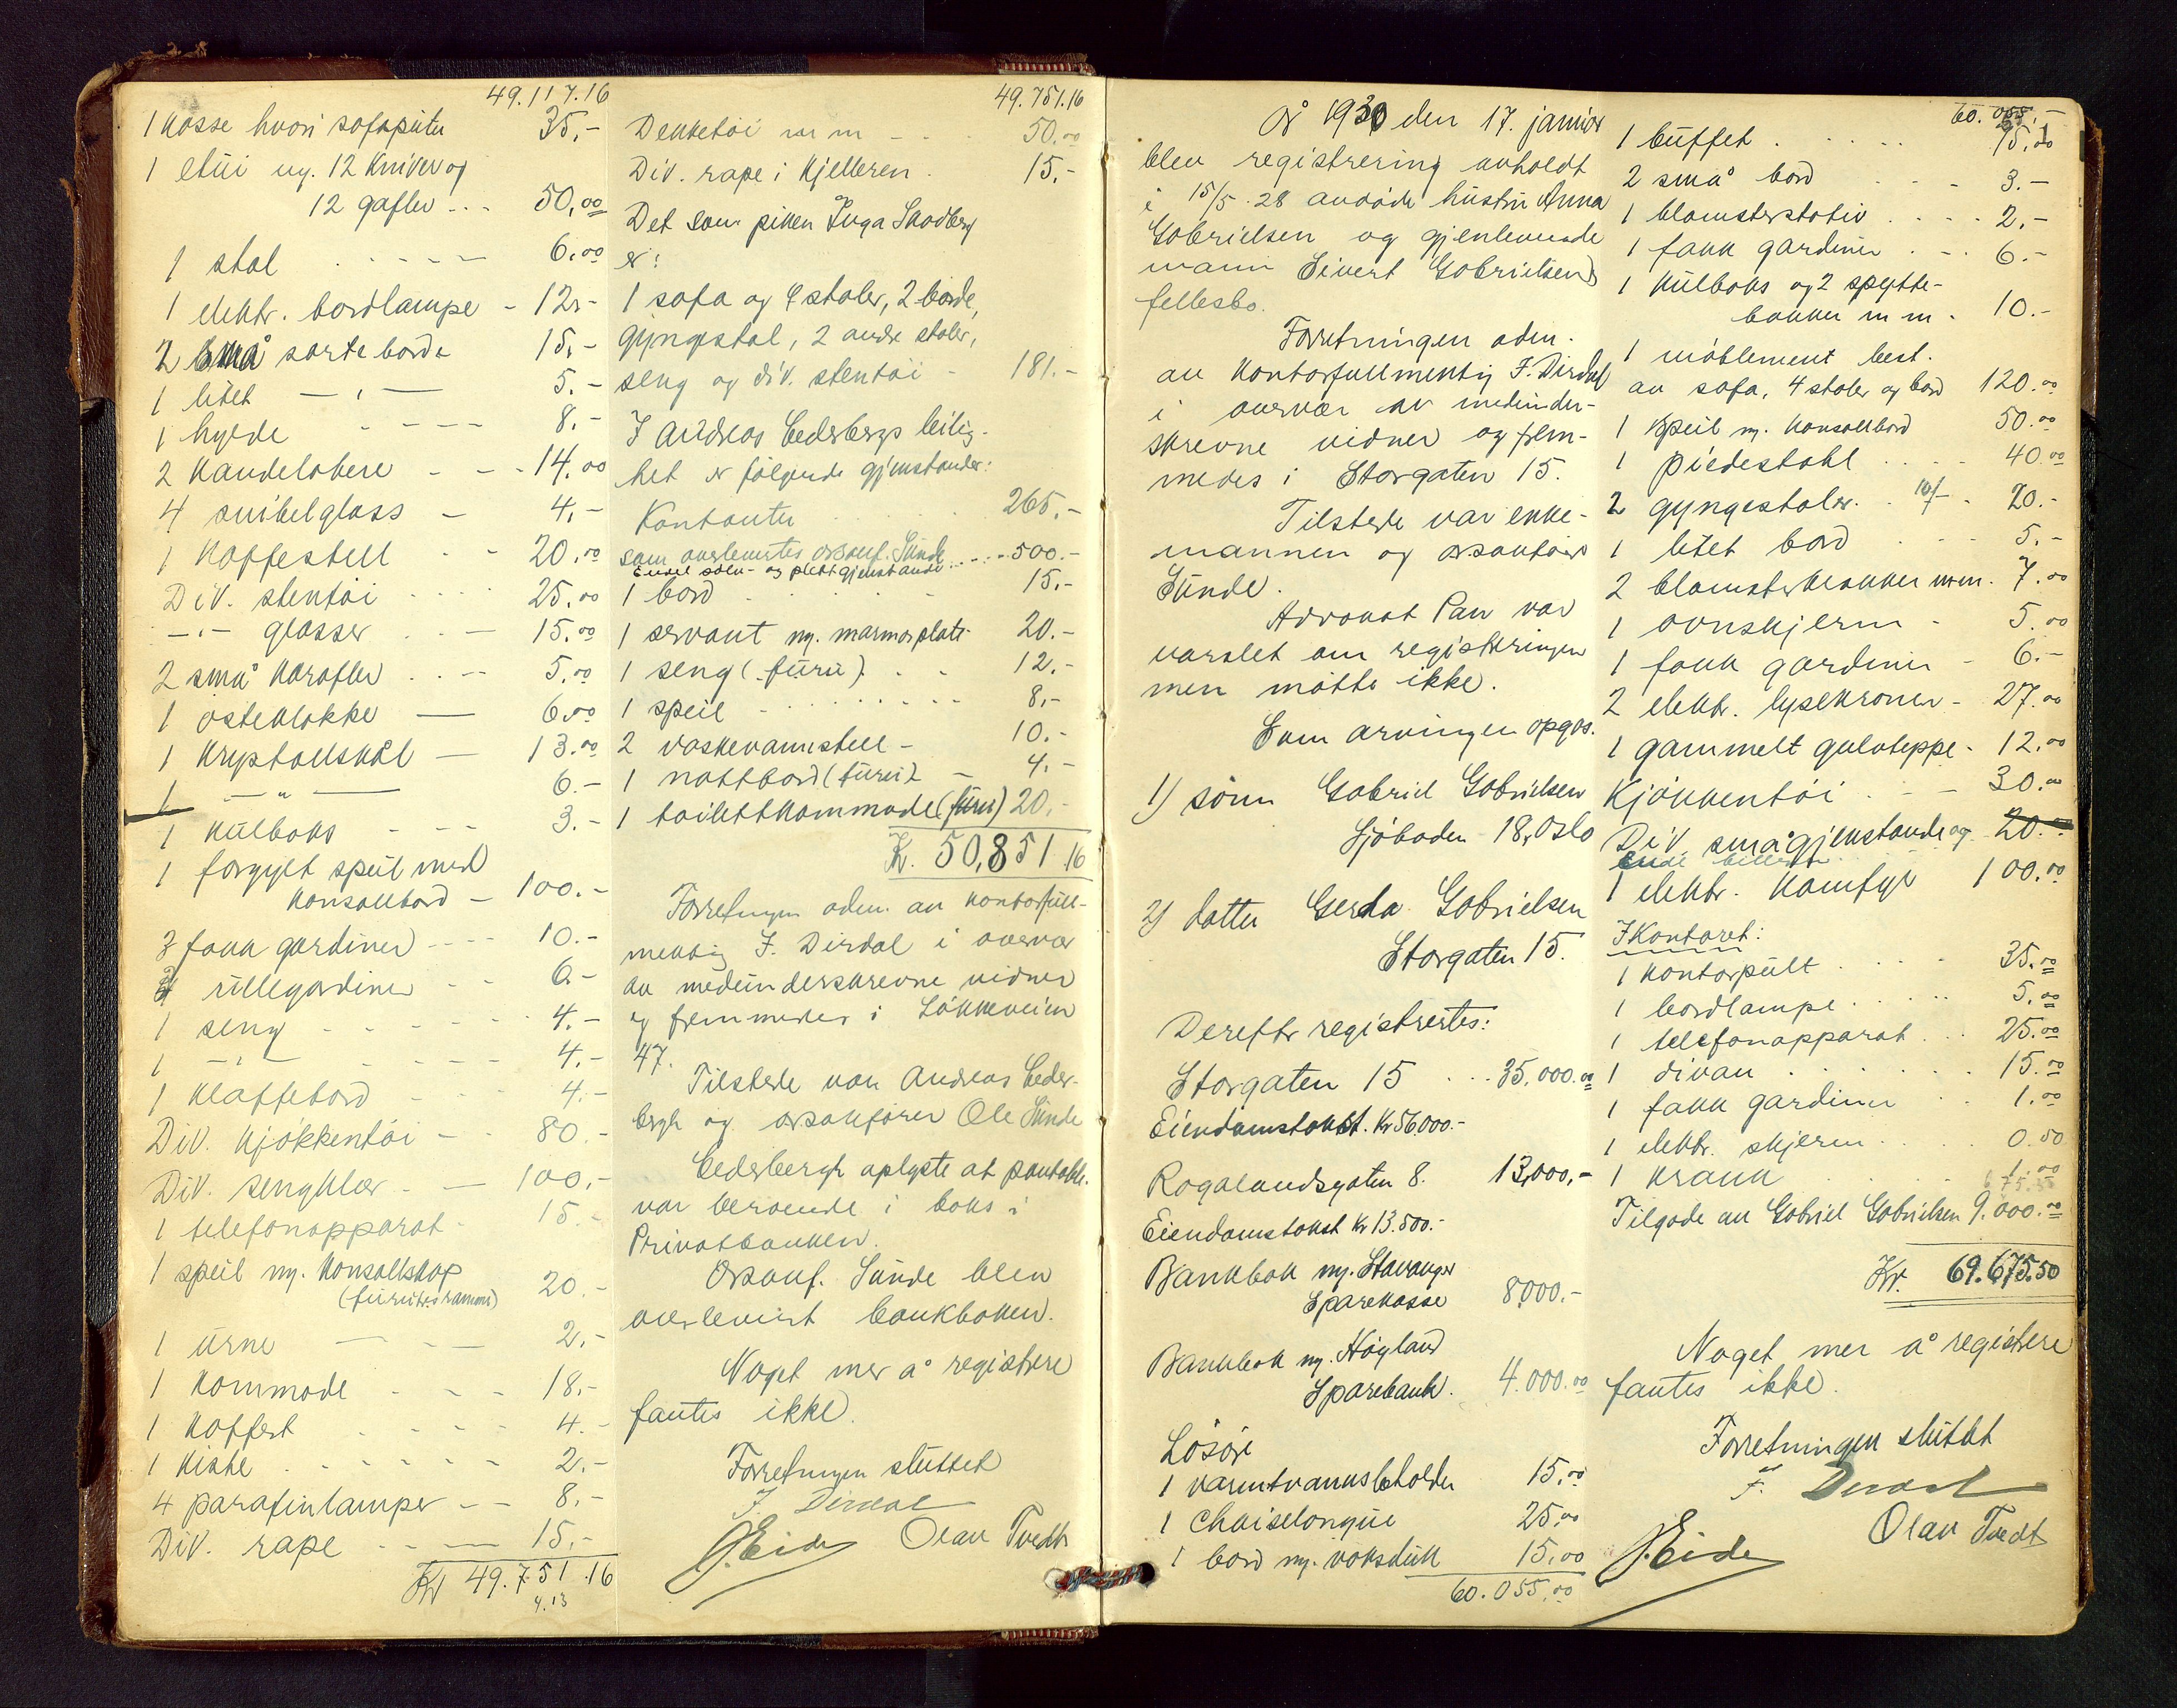 49.117.16
1 kasse hvori sofaputer 35.-
1 etui ny. 12 kniver og
12 gafler ... 50,00
1 stol ..... 6.00
1 elektr. bordlampe - 12.-
2 små sorte borde 15.-
1 litet — " — 5.-
1 hylde ---- 8.-
2 kandelabere - - - 14.00
4 snibelglass - 4.-
1 kaffestell - - 20.00
Div. stentöi .... 25.00
—"— glasser .. - 15.00
2 små karafler .. -- 5.00
1 osteklokke — 6.00
1 krystallskål — 13.00
1 — " — 6.-
1 kulboks - - - 3.-
1 forgylt speil med
konsollbord - 100.-
3 fakk gardiner ---- 10.-
3 rullegardiner -- 6.-
1 seng ------ 4.-
1 — " — --- 4.-
1 klaffebord - - 4.-
Div. kjökkentöi - - 80.-
Div. sengklær. - — 100.-
1 telefonapparat - 15.-
1 speil ny. konsollskap
20.-
1 urne — - - 2.-
1 kommode - - - 18.-
1 koffert - - - 4.-
1 kiste ------ 2.-
4 parafinlamper - - 8.-
Div. rape -- — 15.-
Kr 49.751.16
4.13
49.751.16
Dekketöi m m - . . 50.00
Div. rape i kjelleren . 15.-
Det som piken Inga Skodberg
er:
1 sofa og 4 stoler, 2 borde,
gyngestol, 2 andre stoler,
seng og div. stentöi - 181.-
I Andreas Cederberghs leilig-
het er fölgende gjenstander:
Kontanter . . . 265.-
som overlevertes orsakf. Sunde
Endel sölv- og plettgjenstande .... 500.-
1 bord ..... - 15.-
1 servant ny. marmorplate 20.-
1 seng (furu). . - 12.-
1 speil - ....... 8.-
2 vaskevannstell - 10.-
1 nattbord (furu) - 4.-
1 toilettkommode (furu) 20.-
Kr. 50,851.16
Forretningen adm. av kontorfull-
mektig F. Dirdal i overvær
av medunderskrevne vidner
og fremmedes i Lökkeveien
47.
Tilstede var Andreas Ceder-
bergh og orsakförer Ole Sunde
Cederbergh oplyste at pantobl.
var beroende i boks i
Privatbanken.
Orsakf. Sunde blev
overlevert bankboken.
Noget mer å registrere
fantes ikke.
Forretningen sluttet
F. Dirdal
J. Eide Olav Tvedt
År 1930 den 17. januar
blev registrering avholdt
i 15/5.28 avdöde hustru Anna
Gabrielsen og gjenlevende
mann Sivert Gabrielsens
fellesbo.
Forretningen adm.
av kontorfullmektig F. Dirdal
i overvær av medunder-
skrevne vidner og frem-
medes i Storgaten 15.
Tilstede var enke-
mannen og orsakförer
Sunde.
Advokat Pan var
varslet om registreringen
men mötte ikke.
Som arvinger opgos.
1) sönn Gabriel Gabrielsen
Sjöboden 18, Oslo
2) datter Gerda Gabrielsen
Storgaten 15.
Derefter registrertes:
Storgaten 15 ... 35,000.00
Eiendomstakst. Kr 56.000.-
Rogalandsgaten 8. 13,000,-
Eiendomstakst Kr 13.500.-
Bankbok ny. Stavanger
Sparekasse 8000.-
Bankbok ny. Höyland
Sparebank. 4.000.00
Lösöre
1 varmtvannsbeholder 15.00
1 Chaiselongue 25.00
1 bord ny. voksduk 15.00
60.055.00
60.055.-
1 buffet ..... 75.00
2 små bord - - - 3.-
1 blomsterstativ .... 2.-
1 fakk gardiner . - . 6.-
1 kulboks og 2 spytte-
bakker m m . 10.-
1 möblement best.
av sofa, 4 stoler og bord 120.00
1 speil ny. konsollbord 50.00
1 piedestahl .... 40.00
2 gyngestoler. . 10/- . 20.-
1 litet bord ... 5.-
2 blomsterkrakker m m. 7.00
1 ovnskjerm - 5.00
1 fakk gardiner - 6.-
2 elektr. lysekroner - 27.00
1 gammelt gulvteppe - 12.00
Kjökkentöi - - 30.00
Div. smågjenstande og 20.-
endel billeder
1 elektr. komfyr 100.00
I Kontoret:
1 kontorpult .... 35.00
1 bordlampe ..... 5.00
1 telefonapparat ... 25.00
1 divan ...... 15.00
1 fakk gardiner .. 1.00
1 elektr. skjerm .... 0.50
1 krakk 1.00
675.50
Tilgode av Gabriel Gabrielsen 9.000.00
Kr. 69.675.50
Noget mer å registrere
fantes ikke.
Forretningen sluttet
F. Dirdal
J. Eide Olav Tvedt